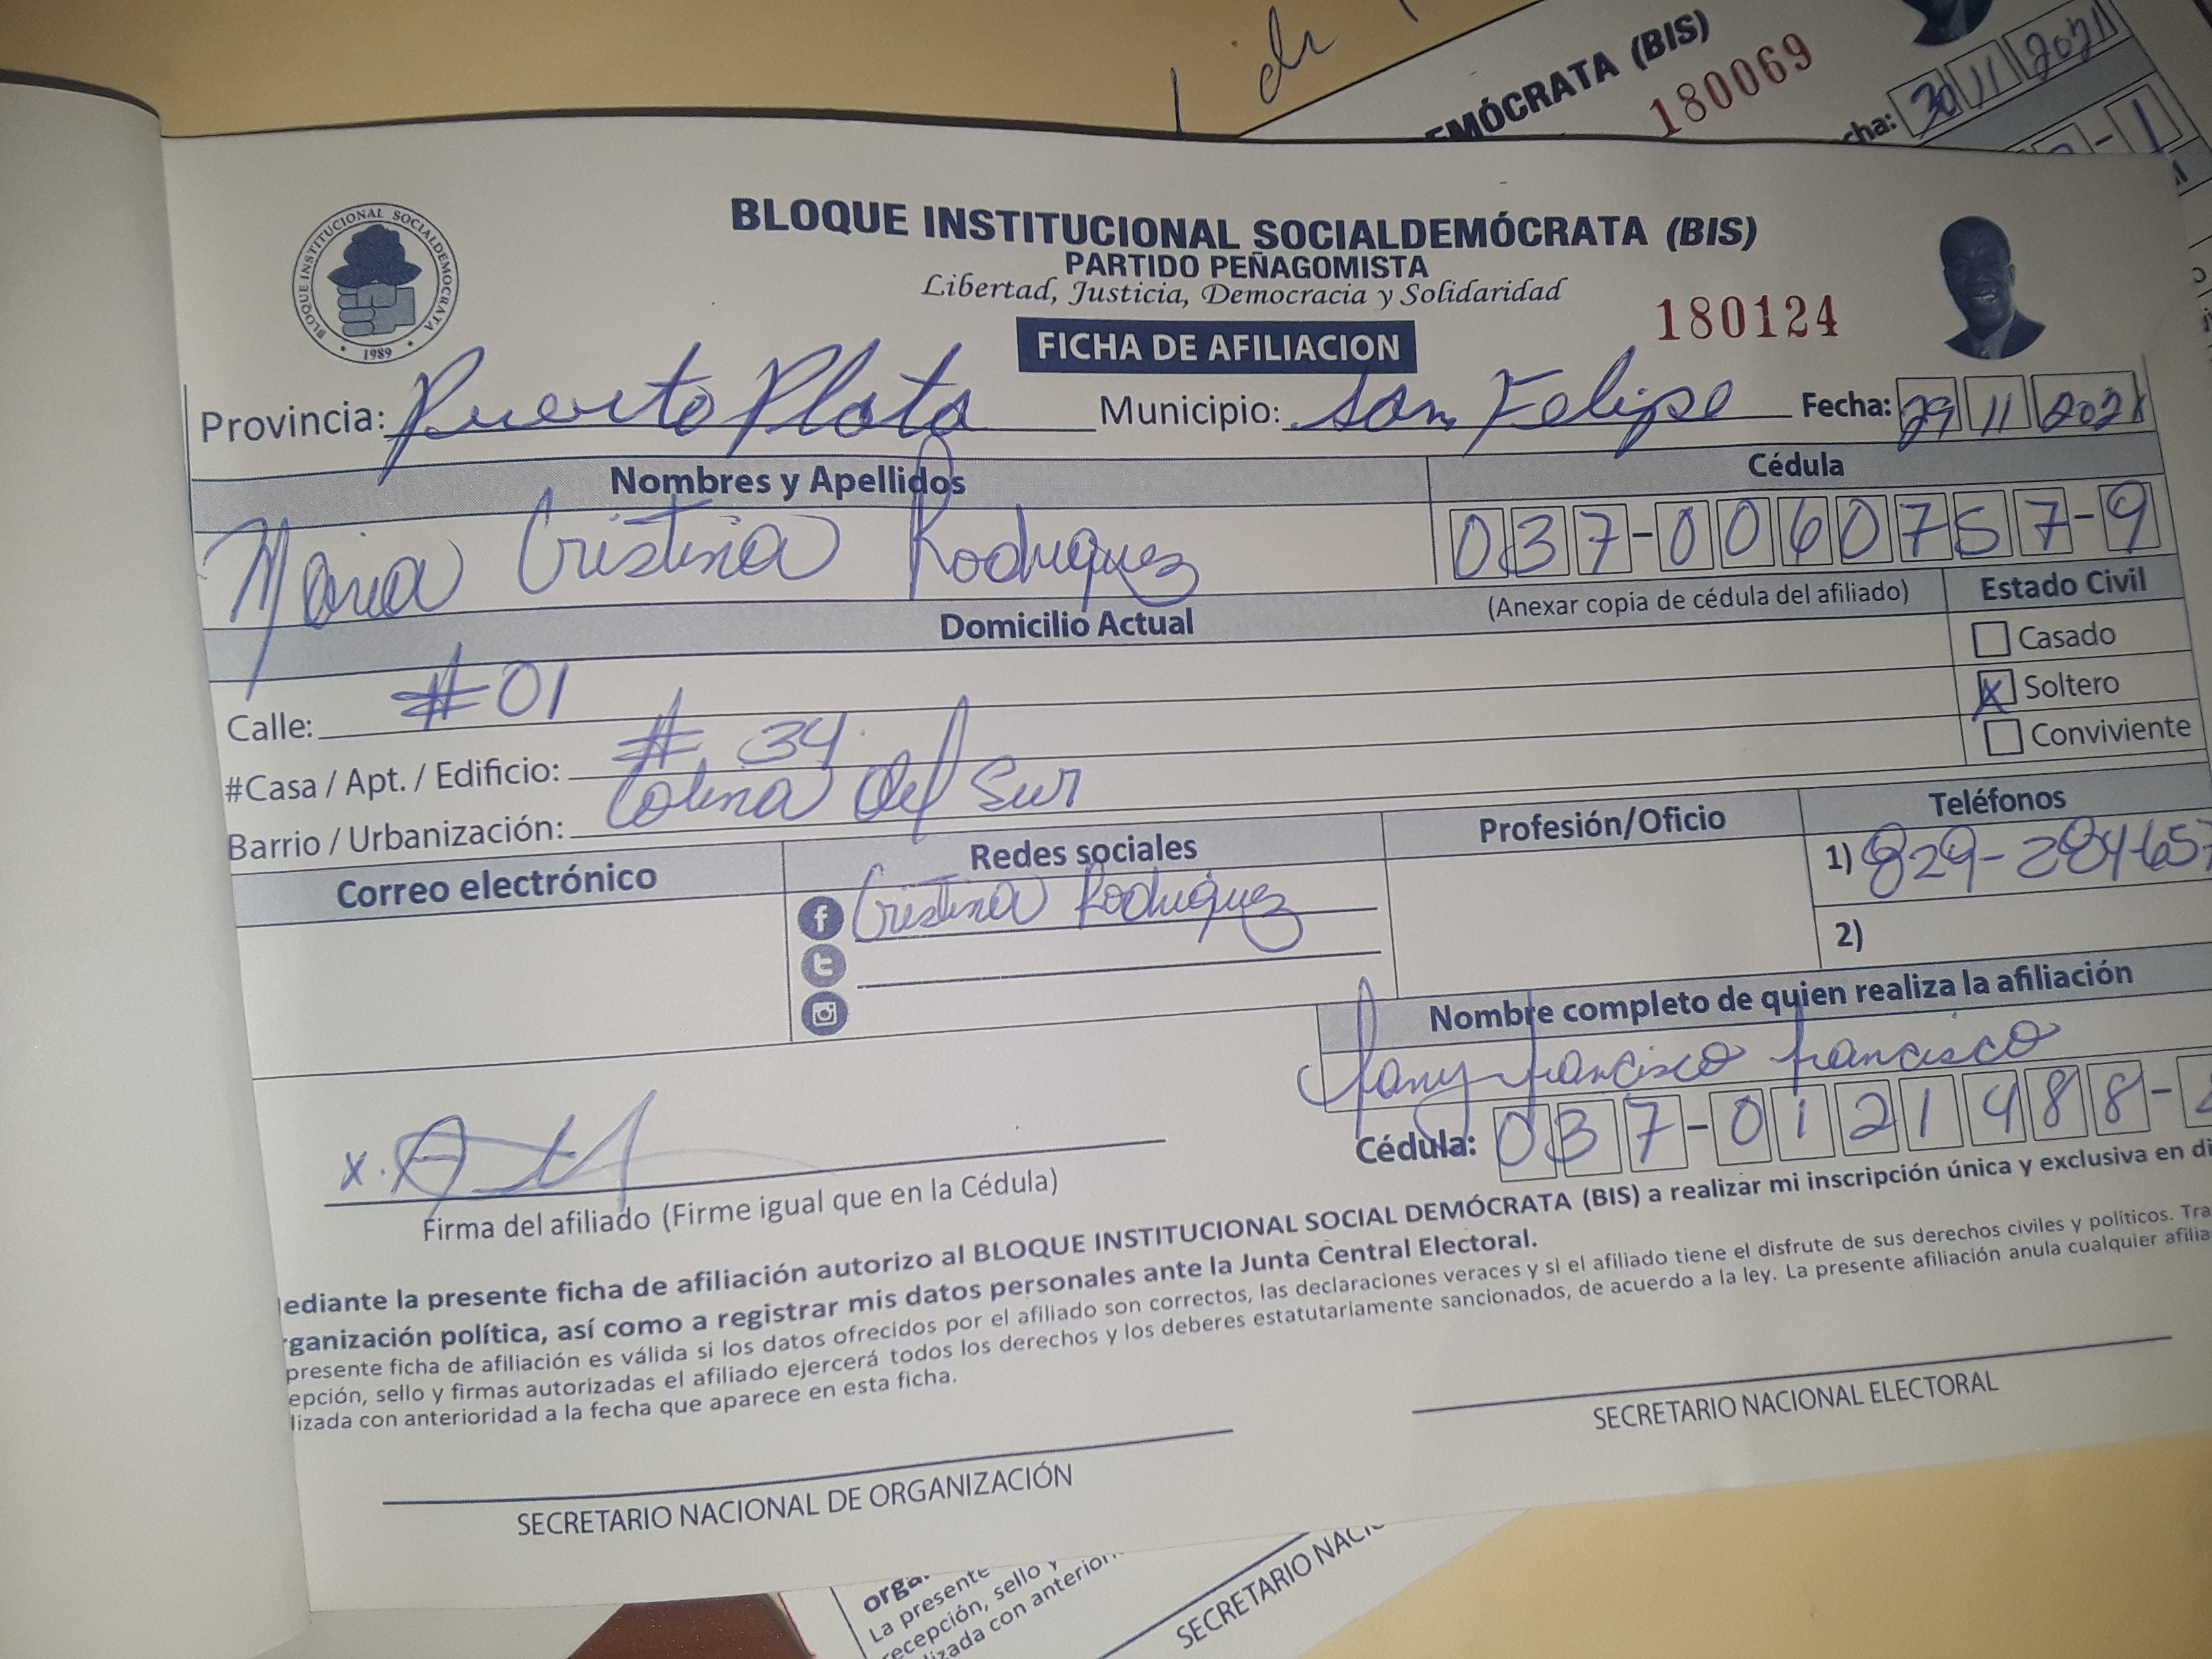 de
EMÓCRATA (BIS)
180069
cha: 30 11 2021
- 1
BLOQUE INSTITUCIONAL SOCIALDEMÓCRATA
1989
BLOQUE INSTITUCIONAL SOCIALDEMÓCRATA (BIS)
PARTIDO PEÑAGOMISTA
Libertad, Justicia, Democracia y Solidaridad
FICHA DE AFILIACION
180124
Provincia: Puerto Plata Municipio: San Felipe Fecha: 29 11 2021
Nombres y Apellidos Cédula
Maria Cristina Rodriguez 037-0060757-9
Domicilio Actual (Anexar copia de cédula del afiliado) Estado Civil
Casado
Calle: #01 X Soltero
#Casa / Apt. / Edificio: # 34 Conviviente
Barrio / Urbanización: Colina del Sur
Correo electrónico Redes sociales Profesión/Oficio Teléfonos
Cristina Rodriguez 1) 829-284-657
2)
Nombre completo de quien realiza la afiliación
francisco francisco
Cédula: 037-0121488-
x.
Firma del afiliado (Firme igual que en la Cédula)
ediante la presente ficha de afiliación autorizo al BLOQUE INSTITUCIONAL SOCIAL DEMÓCRATA (BIS) a realizar mi inscripción única y exclusiva en di
rganización política, así como a registrar mis datos personales ante la Junta Central Electoral.
presente ficha de afiliación es válida si los datos ofrecidos por el afiliado son correctos, las declaraciones veraces y si el afiliado tiene el disfrute de sus derechos civiles y políticos. Tra
epción, sello y firmas autorizadas el afiliado ejercerá todos los derechos y los deberes estatutariamente sancionados, de acuerdo a la ley. La presente afiliación anula cualquier afilia
lizada con anterioridad a la fecha que aparece en esta ficha.
SECRETARIO NACIONAL DE ORGANIZACIÓN SECRETARIO NACIONAL ELECTORAL
orga
La presente
recepción, sello y
lizada con anterior
SECRETARIO NACIO